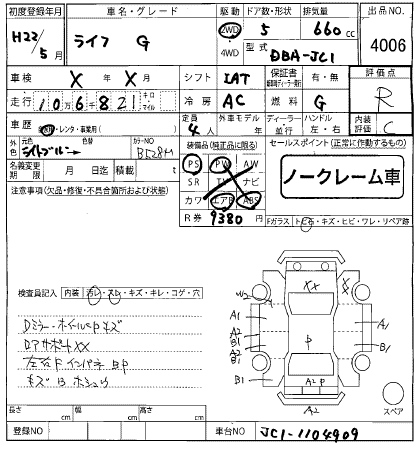 初度登録年月 車名・グレード 駆動 ドア数・形状 排気量 出品NO
H22/5月 ライフ G 2WD 4WD 5 660cc 4006
型式 DBA-JC1
車検 X年 X月 シフト IAT 保証書 有・無 評価点
走行 106821 キロ マイル 冷房 AC 燃料 G R
車歴 自家用・レンタ・事業用( ) 定員 4人 外車モデル 年 ディーラー 並行 ハンドル 左・右 内装評価 C
外色 元色 色替 カラーNO B528M
装備品(純正品に限る) セールスポイント(正常に作動するもの)
名義変更期限 月 日迄 積載 t
PS PW AW
SR TV ナビ
カワ エアB ABS
ノークレーム車
注意事項(欠品・修復・不具合箇所および状態)
R券 9380円
Fガラス トビ石・キズ・ヒビ・ワレ・リペア跡
検査員記入 内装 汚レ・スレ・キズ・キレ・コゲ・穴
Dミラー・ホイールPキズ
ロアサポートXX
左右Fインパネ BP
キズ ホシュウ
W2 XX X
A1 A1
A2 B1 P
A2 B1
B1 A2 P
A2
スペア
長さ cm 幅 cm 高さ cm
登録NO 車台NO JC1-1104909